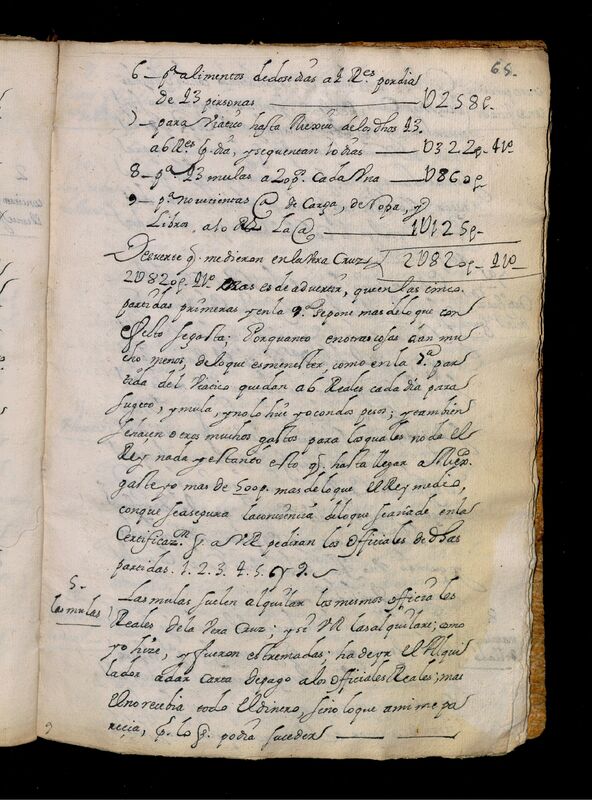 65.
6 – pa alimentos dedosedias a 2 Res por dia
de 23 personas ——— U258p.
7 – para Viatico hasta Mexico delos dhos 23.
a 6 Res p. dia, y sequentan 10 dias —— U322p. 4to
8 – pa 23 mulas a 20p. cada Una —— U860p
9 – pa novicientas @ de Carga, de Ropa, y
Libros, a 10 Rs La @ —— 1U125p.
Desuerte q. medieron en la Vera Cruz 2U820p. 21o
2U820p. 21o mas es de advertir, que en las cinco
partidas primeras y en la 9.a se pone mas delo que con
efeto se gasta; Porquanto en otras cosas dan mu
cho menos, delo que es menester, como en la 7.a par
tida del Viatico que dan a 6 Reales cada dia para
sugeto, y mula, y no lo hize yo con dos pesos; y tambien
se hacen otros muchos gastos para los quales no da el
Rey nada y es tanto esto q. hasta llegar a Mexco.
gaste yo mas de 500p. mas delo que el Rey me dio,
con que se asegura la conciencia delo que se añade en la
Certificazn. q. a VR pediran los Officiales de dhas
partidas. 1. 2. 3. 4. 5. y 9.
5.
las mulas
Las mulas suelen alquilar los mesmos officiales
Reales de la Vera Cruz; y si VR las alquilare; como
yo hize, y fueron estremadas; ha de yr el Alqui
lador a dar Carta de pago a los Officiales Reales; mas
el no recebia todo el dinero, sino lo que a mi me pa
recia, p. lo q. podia suceder ——